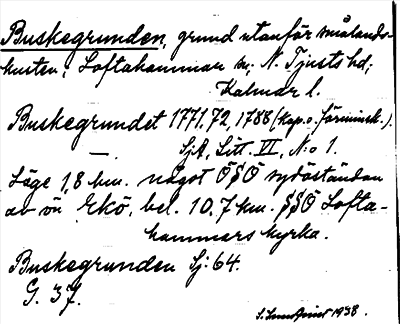 Buskegrunden, grund utanför smålands-
kusten; Loftahammar sn, N. Tjusts hd;
Kalmar l.
Buskegrundet 1771, 72, 1788 (kop. o. förminsk.).
— SjA, Litt. VI, No 1.
Läge 1,8 km. något ÖSÖ sydöständan
av ön Ekö, bel. 10,7 km. SSÖ Lofta-
hammars kyrka.
Buskegrunden Sj: 64.
G. 37.
1938.